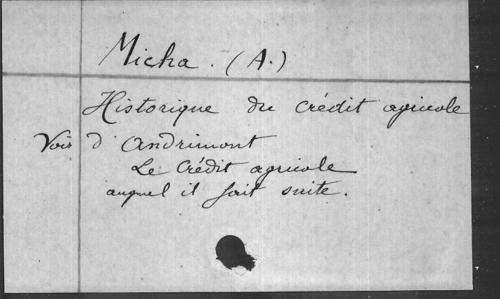 Micha. (A.)
Historique du crédit agricole
Voir d'Andrimont
Le Crédit agricole
auquel il fait suite.